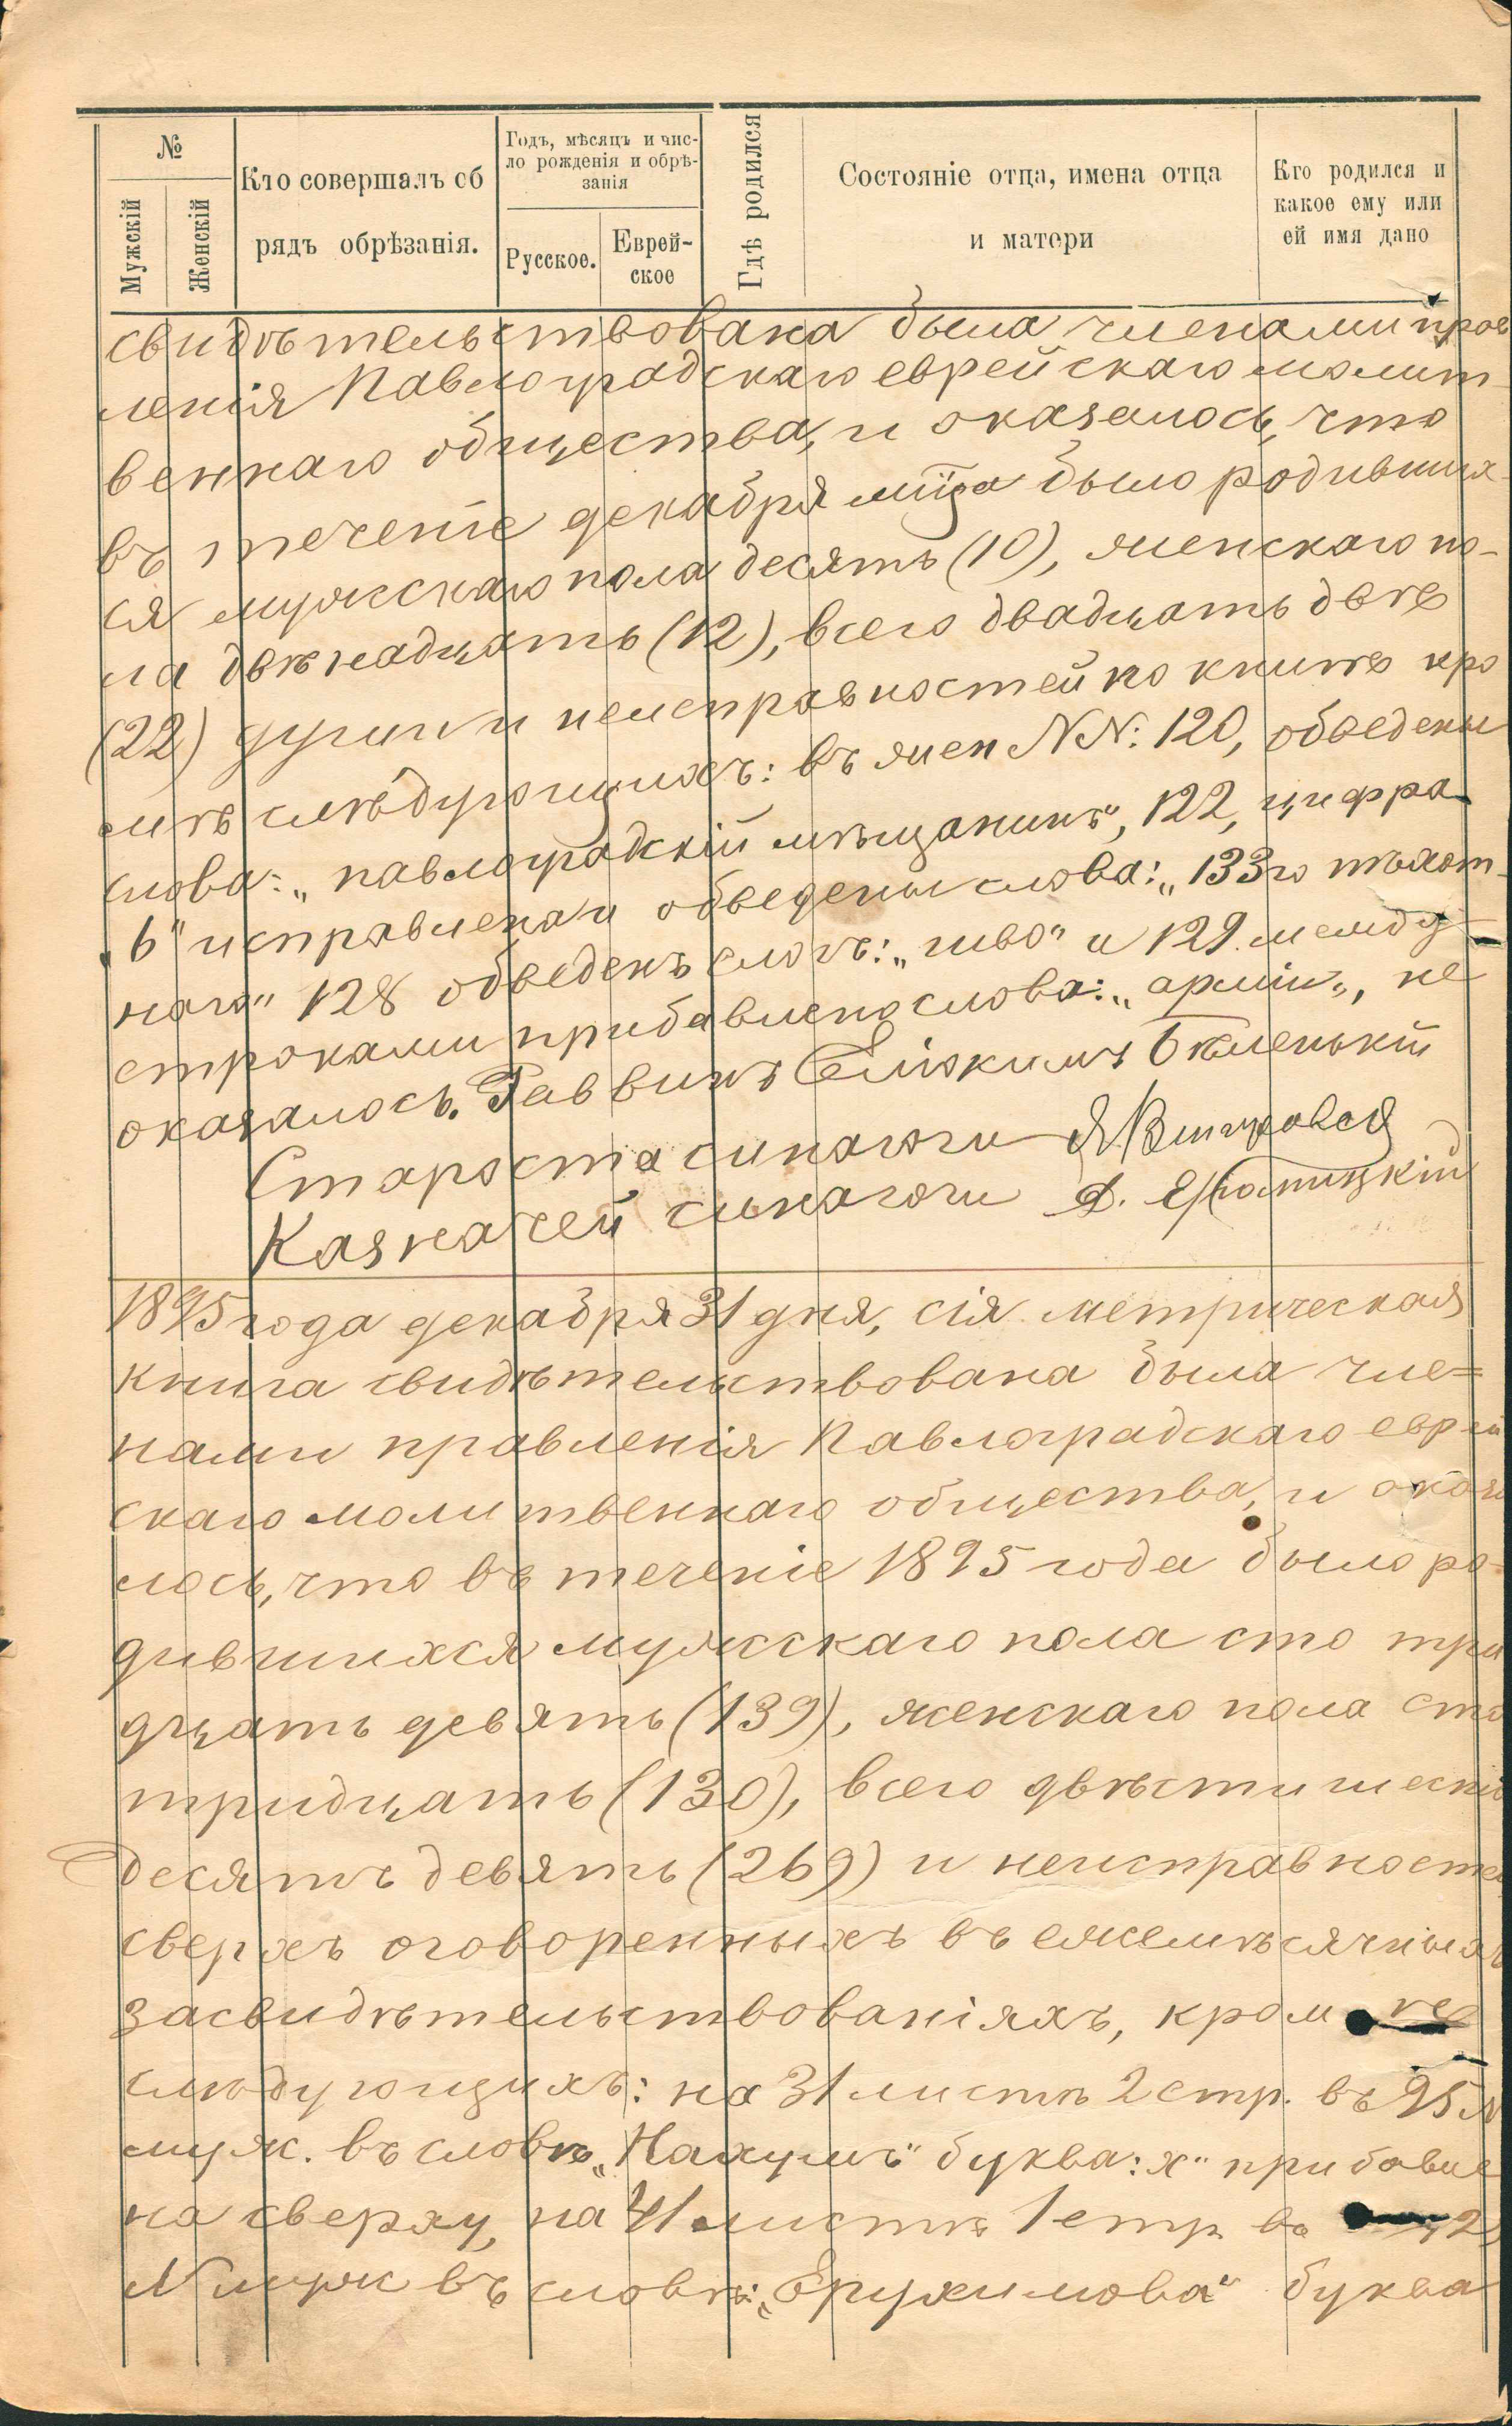 №
Мужскій
Женскій
Кто совершалъ об
рядъ обрѣзанія.
Годъ, мѣсяцъ и чис-
ло рожденія и обрѣ-
занія
Русское.
Еврей-
ское
Гдѣ родился
Состояніе отца, имена отца
и матери
Кто родился и
какое ему или
ей имя дано
свидѣтельствована была членами прав
ленія Павлоградскаго еврейскаго молит-
веннаго общества, и оказалось, что
въ теченіе декабря мца было родивших-
ся мужескаго пола десять (10), женскаго по-
ла двѣнадцать (12), всего двадцать двѣ
(22) души и неисправностей по книгѣ кро
мѣ слѣдующихъ: въ жен NN: 120, обведены
слова: „павлоградскій мѣщанинъ", 122, цифра
„6" исправлена и обведены слова: „133го пѣхот-
наго" 128 обведенъ слогъ: „ 	и 129 между
строками прибавлено слова: „арміи", не
оказалось. Раввинъ Еліокимъ Бѣленькій
Староста синагоги Я
Казначей синагоги
1895 года декабря 31 дня, сія метрическая
книга свидѣтельствована была чле=
нами правленія Павлоградскаго еврей
скаго молитвеннаго общества, и оказа
лось, что въ теченіе 1895 года было ро-
дившихся мужескаго пола сто три
дцать девять (139), женскаго пола сто
тридцать (130), всего двѣсти шесть
десятъ девять (269) и неисправностей
сверхъ оговоренныхъ въ ежемѣсячныхъ
засвидѣтельствованіяхъ, кромѣ
слѣдующихъ: на 31 листѣ 2 стр. въ 95 N
муж. въ словѣ „Нахумъ" буква: х" прибавле
на сверху, на 41 листѣ 1 стр въ
N муж въ словѣ: „Ерухимова" буква